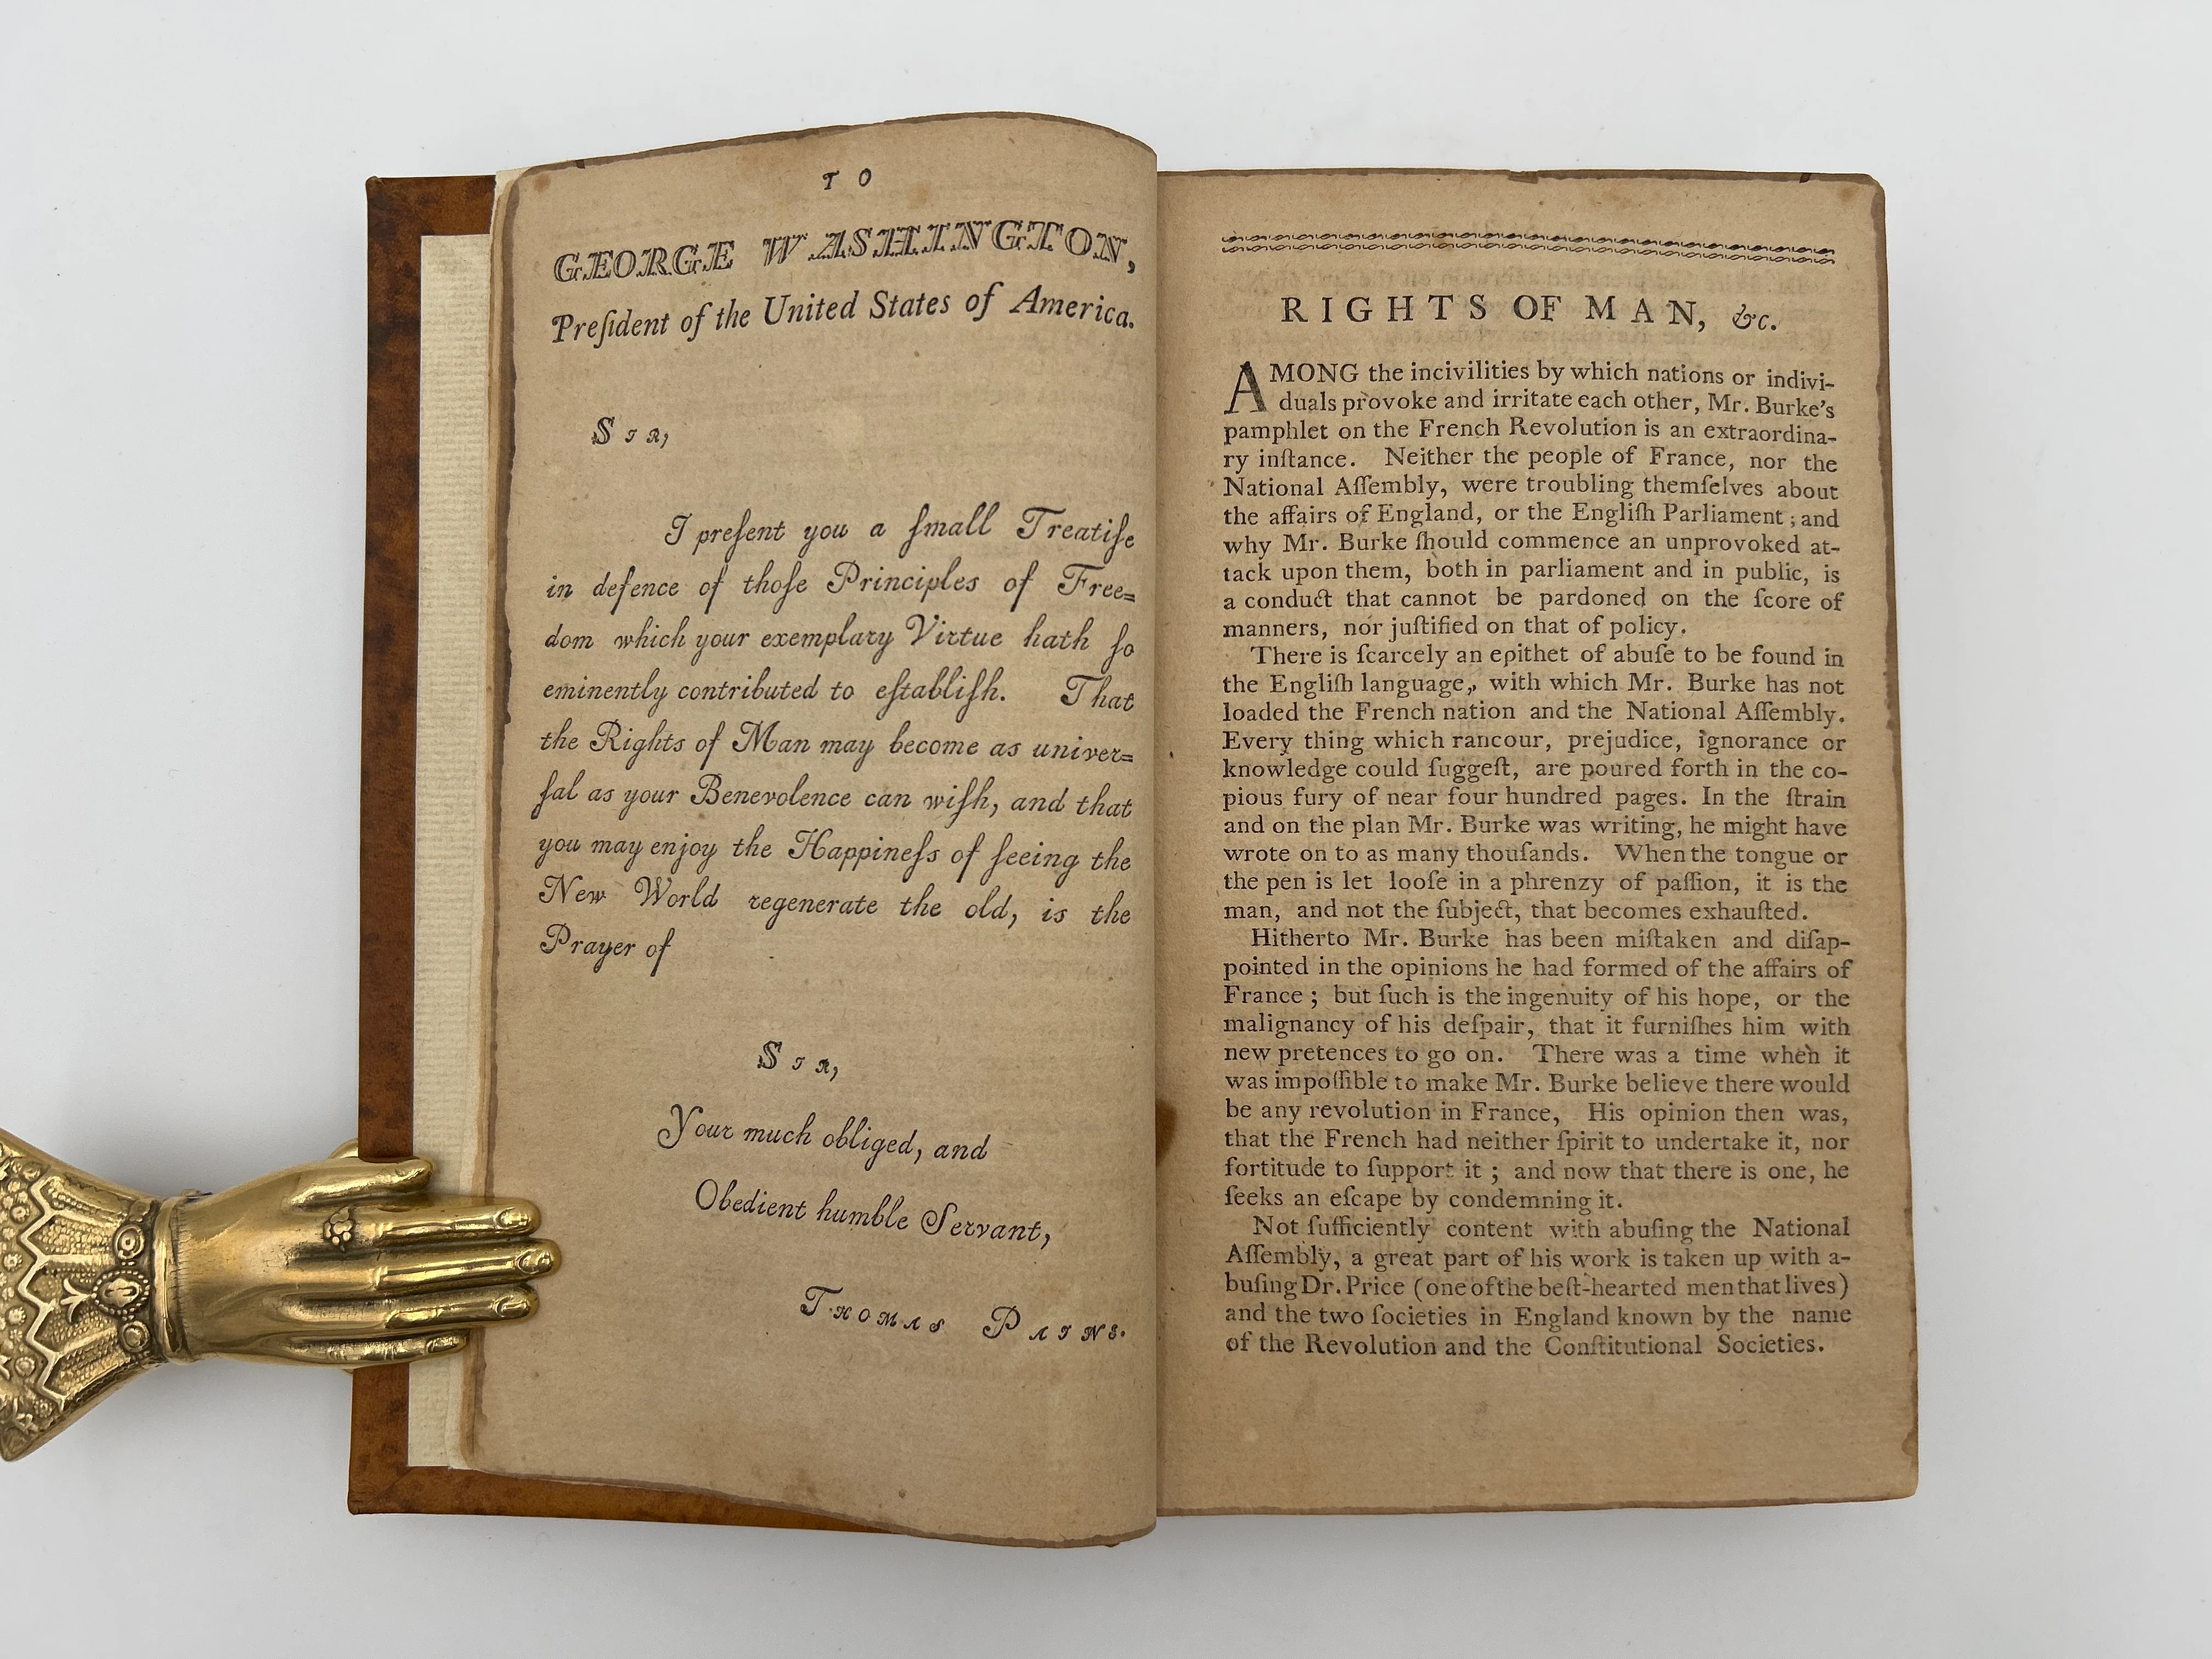 T O
GEORGE WASHINGTON,
Preſident of the United States of America.
SIR,
I preſent you a ſmall Treatiſe
in defence of thoſe Principles of Free=
dom which your exemplary Virtue hath ſo
eminently contributed to eſtabliſh. That
the Rights of Man may become as univer=
ſal as your Benevolence can wiſh, and that
you may enjoy the Happineſs of ſeeing the
New World regenerate the old, is the
Prayer of
SIR,
Your much obliged, and
Obedient humble Servant,
THOMAS PAINE.
RIGHTS OF MAN, &c.
AMONG the incivilities by which nations or indivi-
duals provoke and irritate each other, Mr. Burke's
pamphlet on the French Revolution is an extraordina-
ry inſtance. Neither the people of France, nor the
National Aſſembly, were troubling themſelves about
the affairs of England, or the Engliſh Parliament; and
why Mr. Burke ſhould commence an unprovoked at-
tack upon them, both in parliament and in public, is
a conduct that cannot be pardoned on the ſcore of
manners, nor juſtified on that of policy.
There is ſcarcely an epithet of abuſe to be found in
the Engliſh language, with which Mr. Burke has not
loaded the French nation and the National Aſſembly.
Every thing which rancour, prejudice, ignorance or
knowledge could ſuggeſt, are poured forth in the co-
pious fury of near four hundred pages. In the ſtrain
and on the plan Mr. Burke was writing, he might have
wrote on to as many thouſands. When the tongue or
the pen is let looſe in a phrenzy of paſſion, it is the
man, and not the ſubject, that becomes exhauſted.
Hitherto Mr. Burke has been miſtaken and diſap-
pointed in the opinions he had formed of the affairs of
France; but ſuch is the ingenuity of his hope, or the
malignancy of his deſpair, that it furniſhes him with
new pretences to go on. There was a time when it
was impoſſible to make Mr. Burke believe there would
be any revolution in France, His opinion then was,
that the French had neither ſpirit to undertake it, nor
fortitude to ſupport it; and now that there is one, he
ſeeks an eſcape by condemning it.
Not ſufficiently content with abuſing the National
Aſſembly, a great part of his work is taken up with a-
buſing Dr. Price (one of the beſt-hearted men that lives)
and the two ſocieties in England known by the name
of the Revolution and the Conſtitutional Societies.